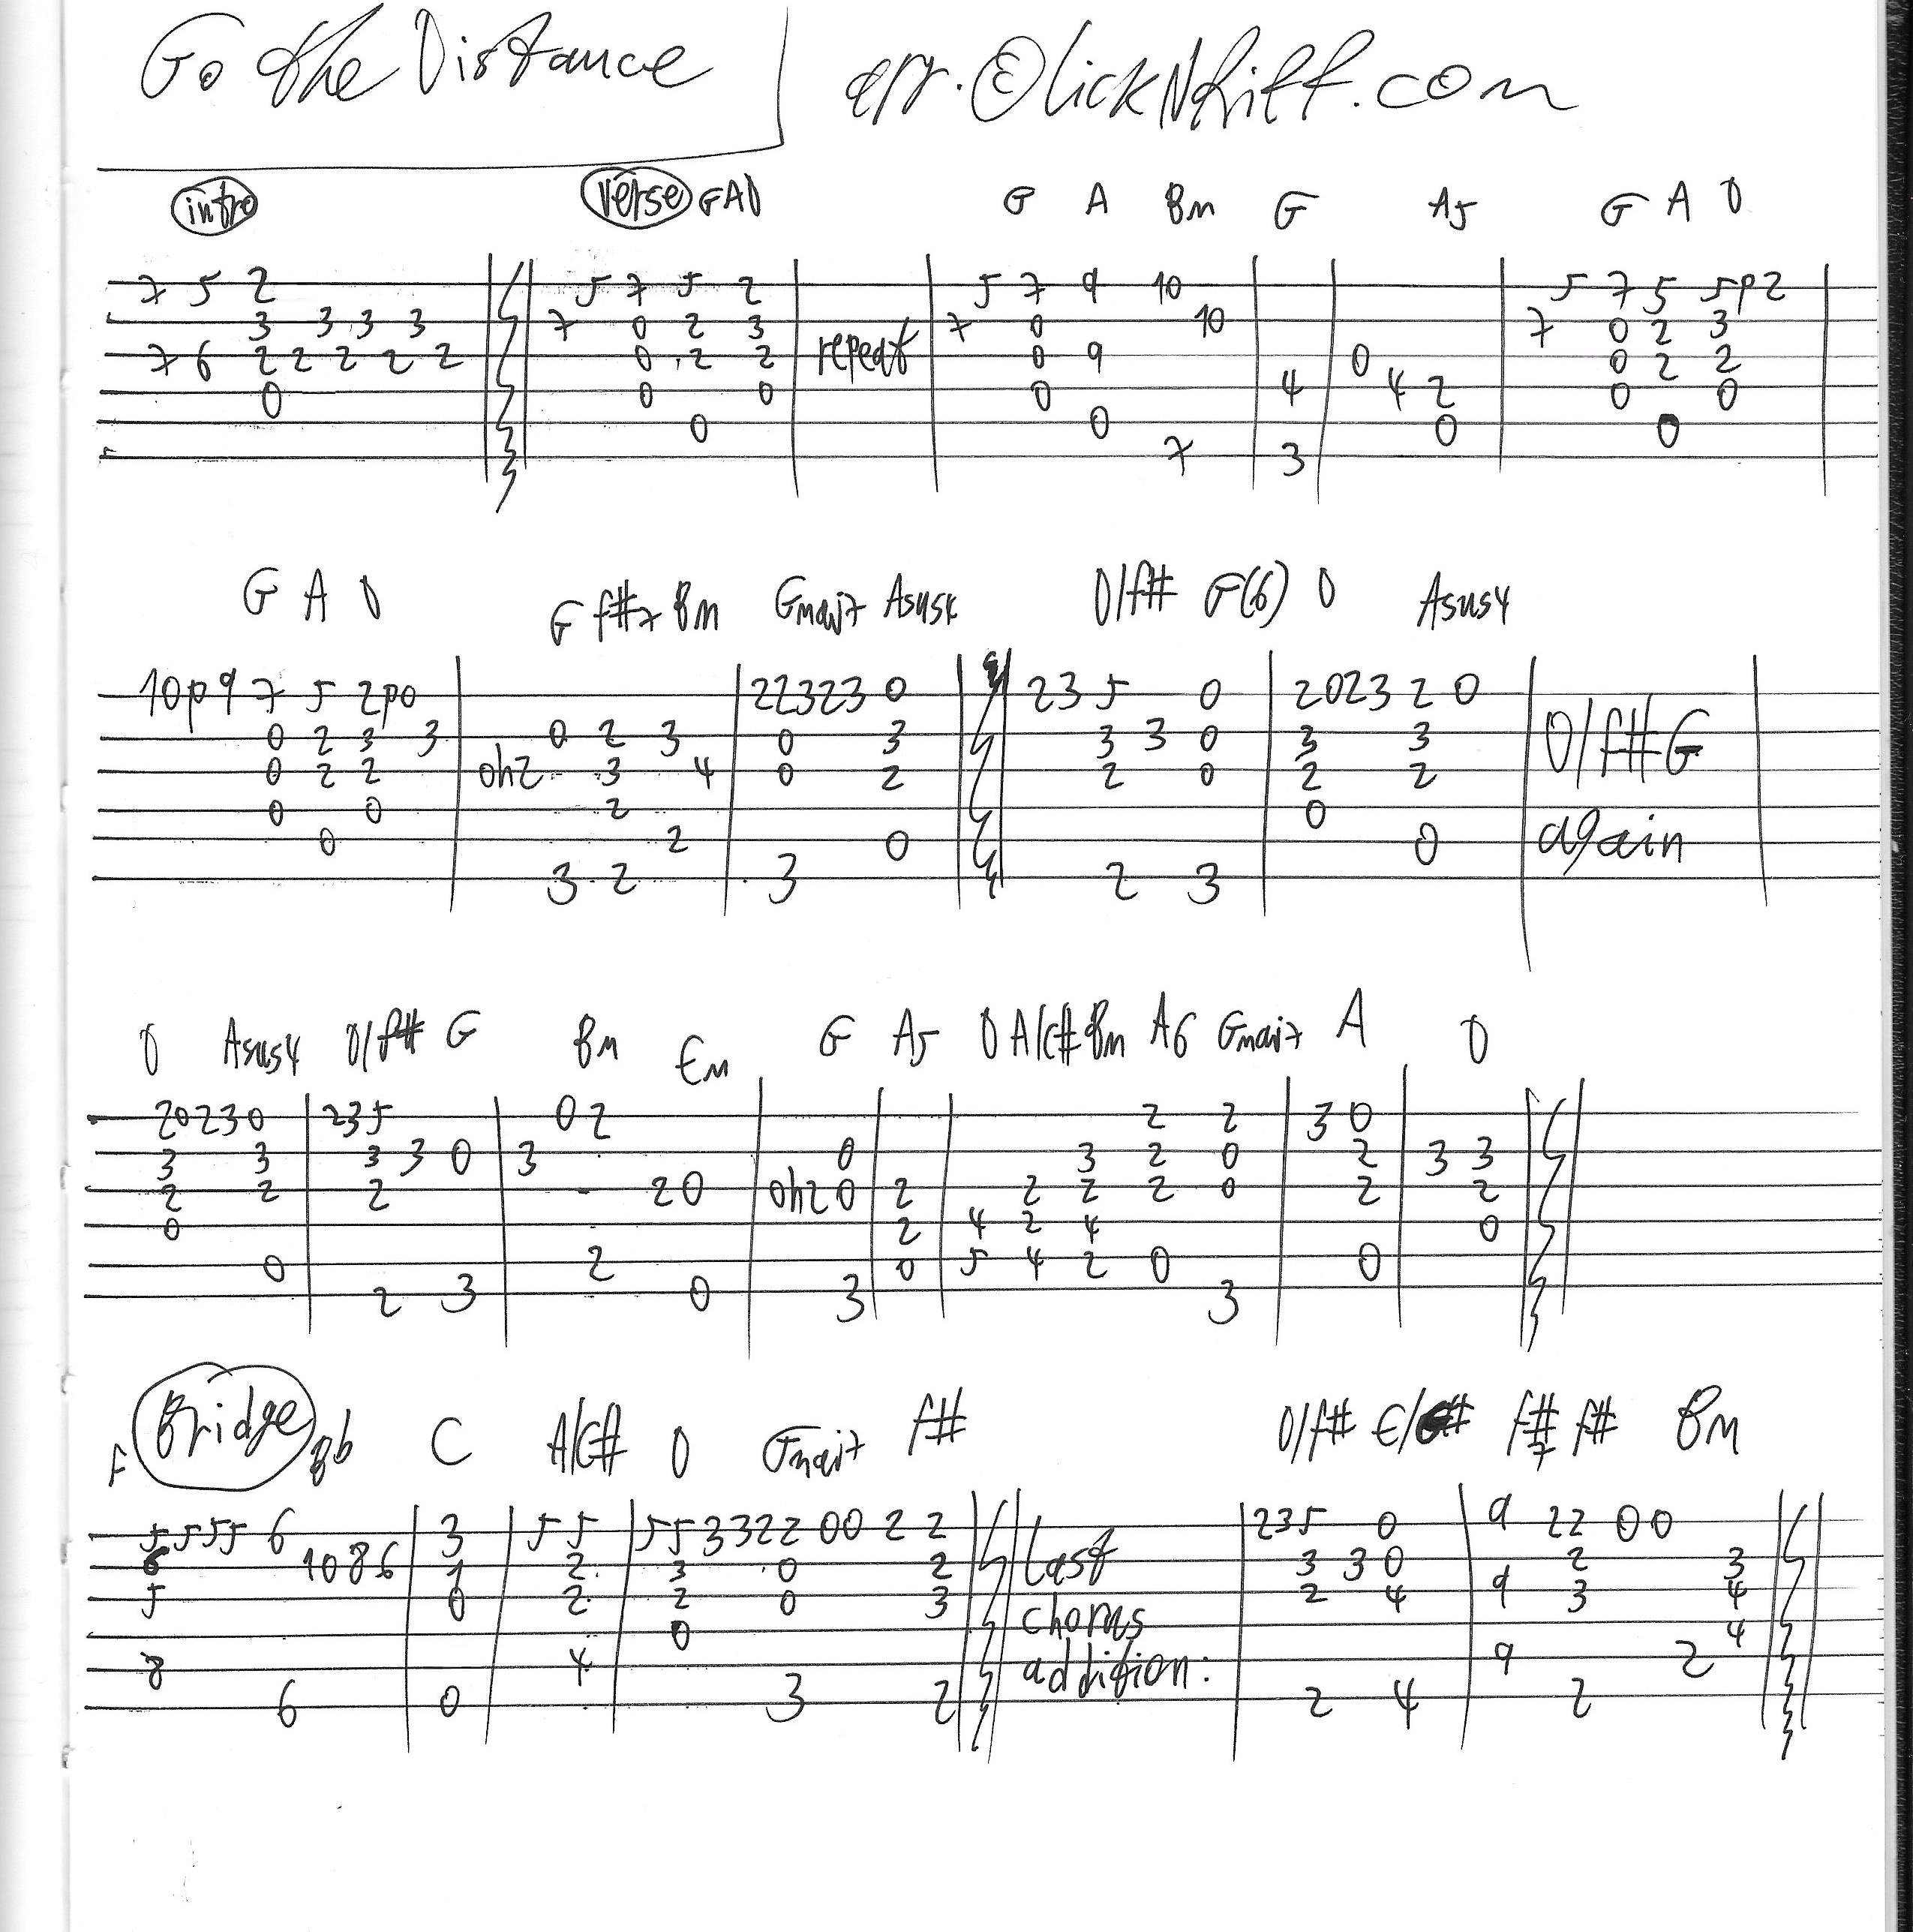 Go the Distance arr. @lickNriff.com
intro verse G A D G A Bm G A5 G A D
7 5 2 5 7 5 2 5 7 9 10 5 7 5 5p2
3 3 3 3 7 0 2 3 repeat 7 0 10 7 0 2 3
7 6 2 2 2 2 2 0 2 2 0 9 0 0 2 2
0 0 0 0 4 4 2 0 0
0 0 0 0
7 3
G A D G F#7 Bm Gmaj7 Asus4 D/F# G(6) D Asus4
10p9 7 5 2p0 22323 0 23 5 0 2023 2 0
0 2 3 3 0 2 3 0 3 3 3 0 3 3 D/F# G
0 2 2 0h2 3 4 0 2 2 0 2 2
0 0 2 0
0 2 0 0 again
3 2 3 2 3
D Asus4 D/F# G Bm Em G A5 D A/C# Bm A6 Gmaj7 A D
20230 235 02 2 2 3 0
3 3 3 3 0 3 0 3 2 0 2 3 3
2 2 2 20 0h20 2 2 2 2 0 2 2
0 2 4 2 4 0
0 2 0 5 4 2 0 0
2 3 0 3 3
F Bridge Bb C A/C# D Gmaj7 F# D/F# E/G# F#7 F# Bm
5555 6 3 5 5 55 33 22 00 2 2 last 235 0 9 22 00
6 1086 1 2 3 0 2 3 3 0 2 3
5 0 2 2 0 3 chorus 2 4 9 3 4
0 4
8 4 addition: 9 2
6 0 3 2 2 4 2